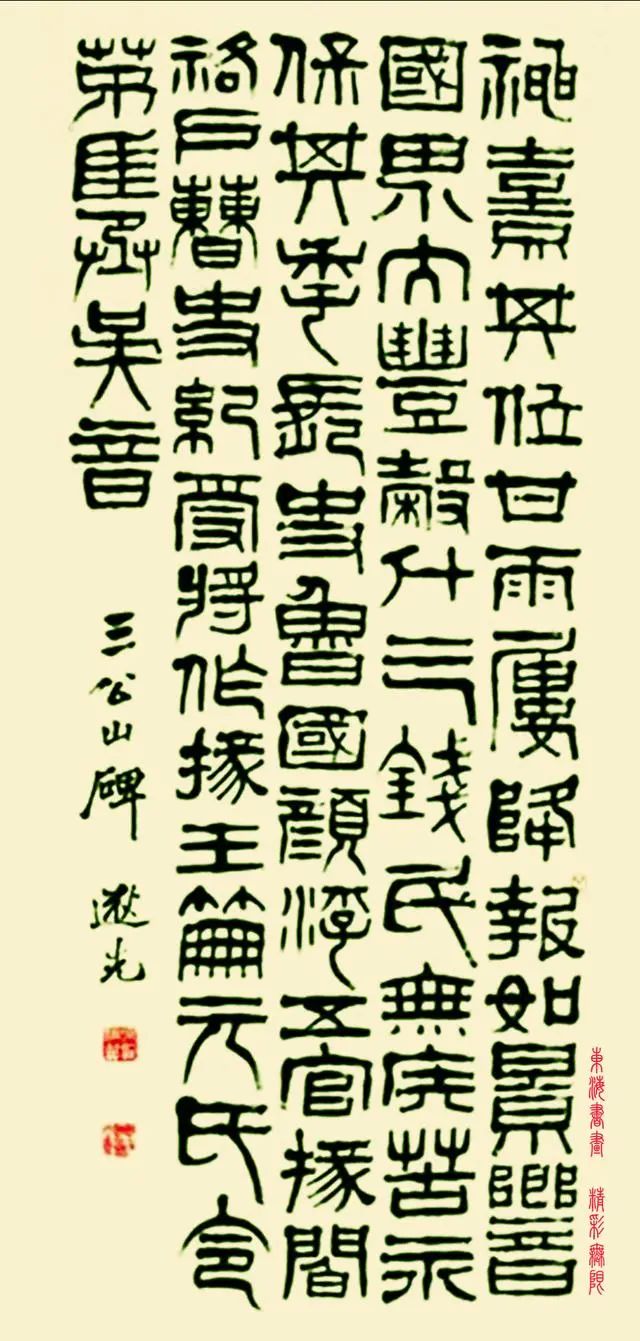 神熹其位甘雨屢降報如景響
國界大豐穀斗三錢民無疾苦永
保其年長史魯國顏浮五官掾閻
祐戶曹史紀受將作掾王笧元氏令
茀匡丞吳音
三公山碑
東海書畫 精彩無限